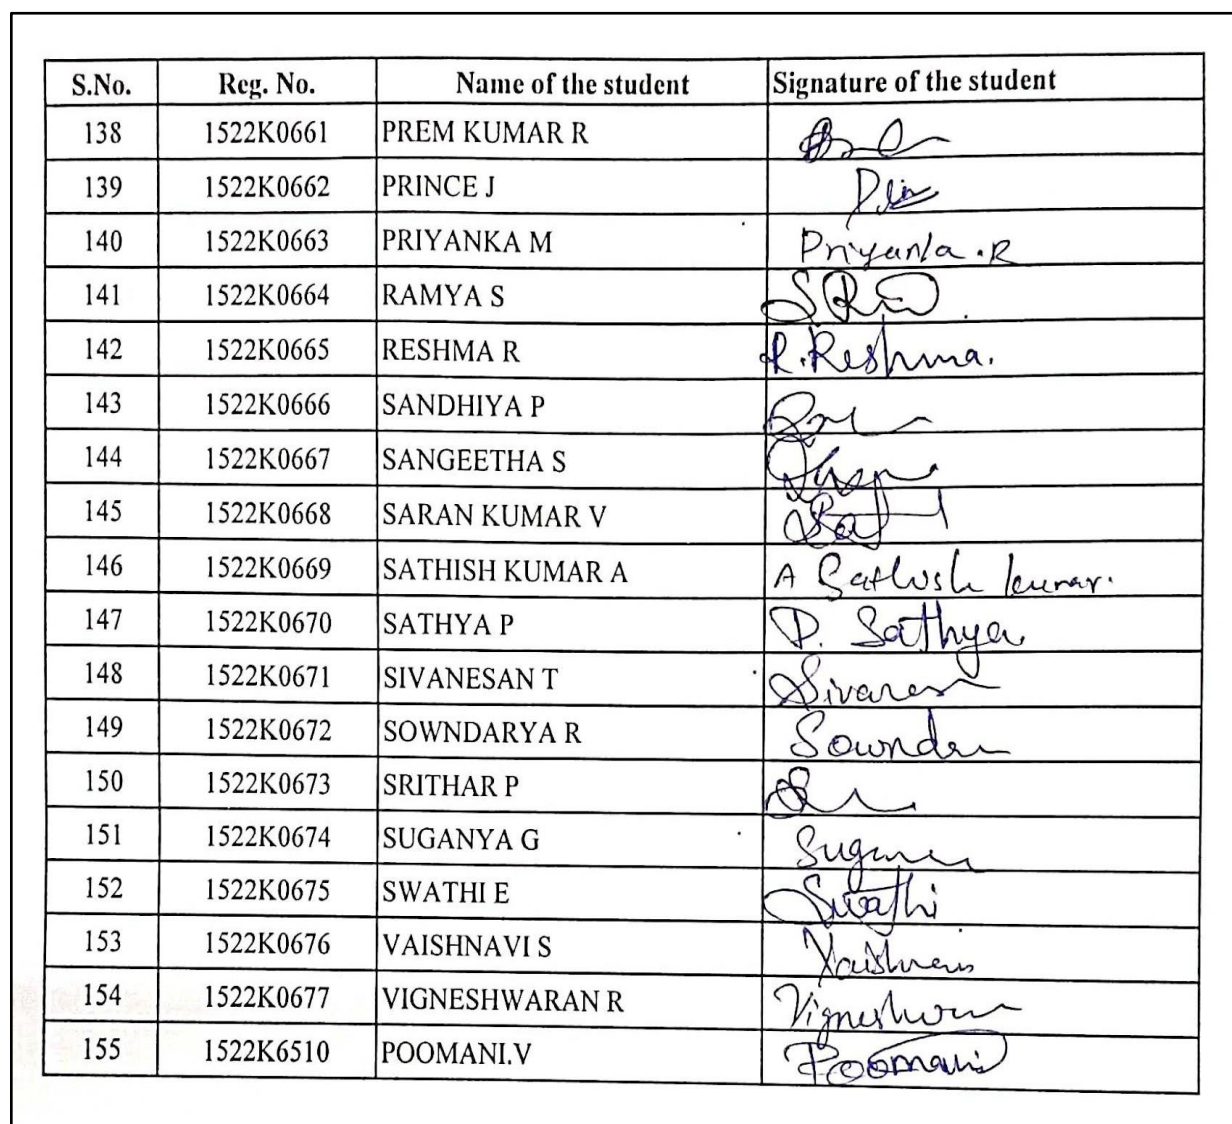 S.No. Reg. No. Name of the student Signature of the student
138 1522K0661 PREM KUMAR R
139 1522K0662 PRINCE J
140 1522K0663 PRIYANKA M Priyanka .R
141 1522K0664 RAMYA S
142 1522K0665 RESHMA R R. Reshma.
143 1522K0666 SANDHIYA P
144 1522K0667 SANGEETHA S
145 1522K0668 SARAN KUMAR V
146 1522K0669 SATHISH KUMAR A A Sathish kumar.
147 1522K0670 SATHYA P P. Sathya
148 1522K0671 SIVANESAN T
149 1522K0672 SOWNDARYA R
150 1522K0673 SRITHAR P
151 1522K0674 SUGANYA G
152 1522K0675 SWATHI E Swathi
153 1522K0676 VAISHNAVI S
154 1522K0677 VIGNESHWARAN R
155 1522K6510 POOMANI.V Poomani